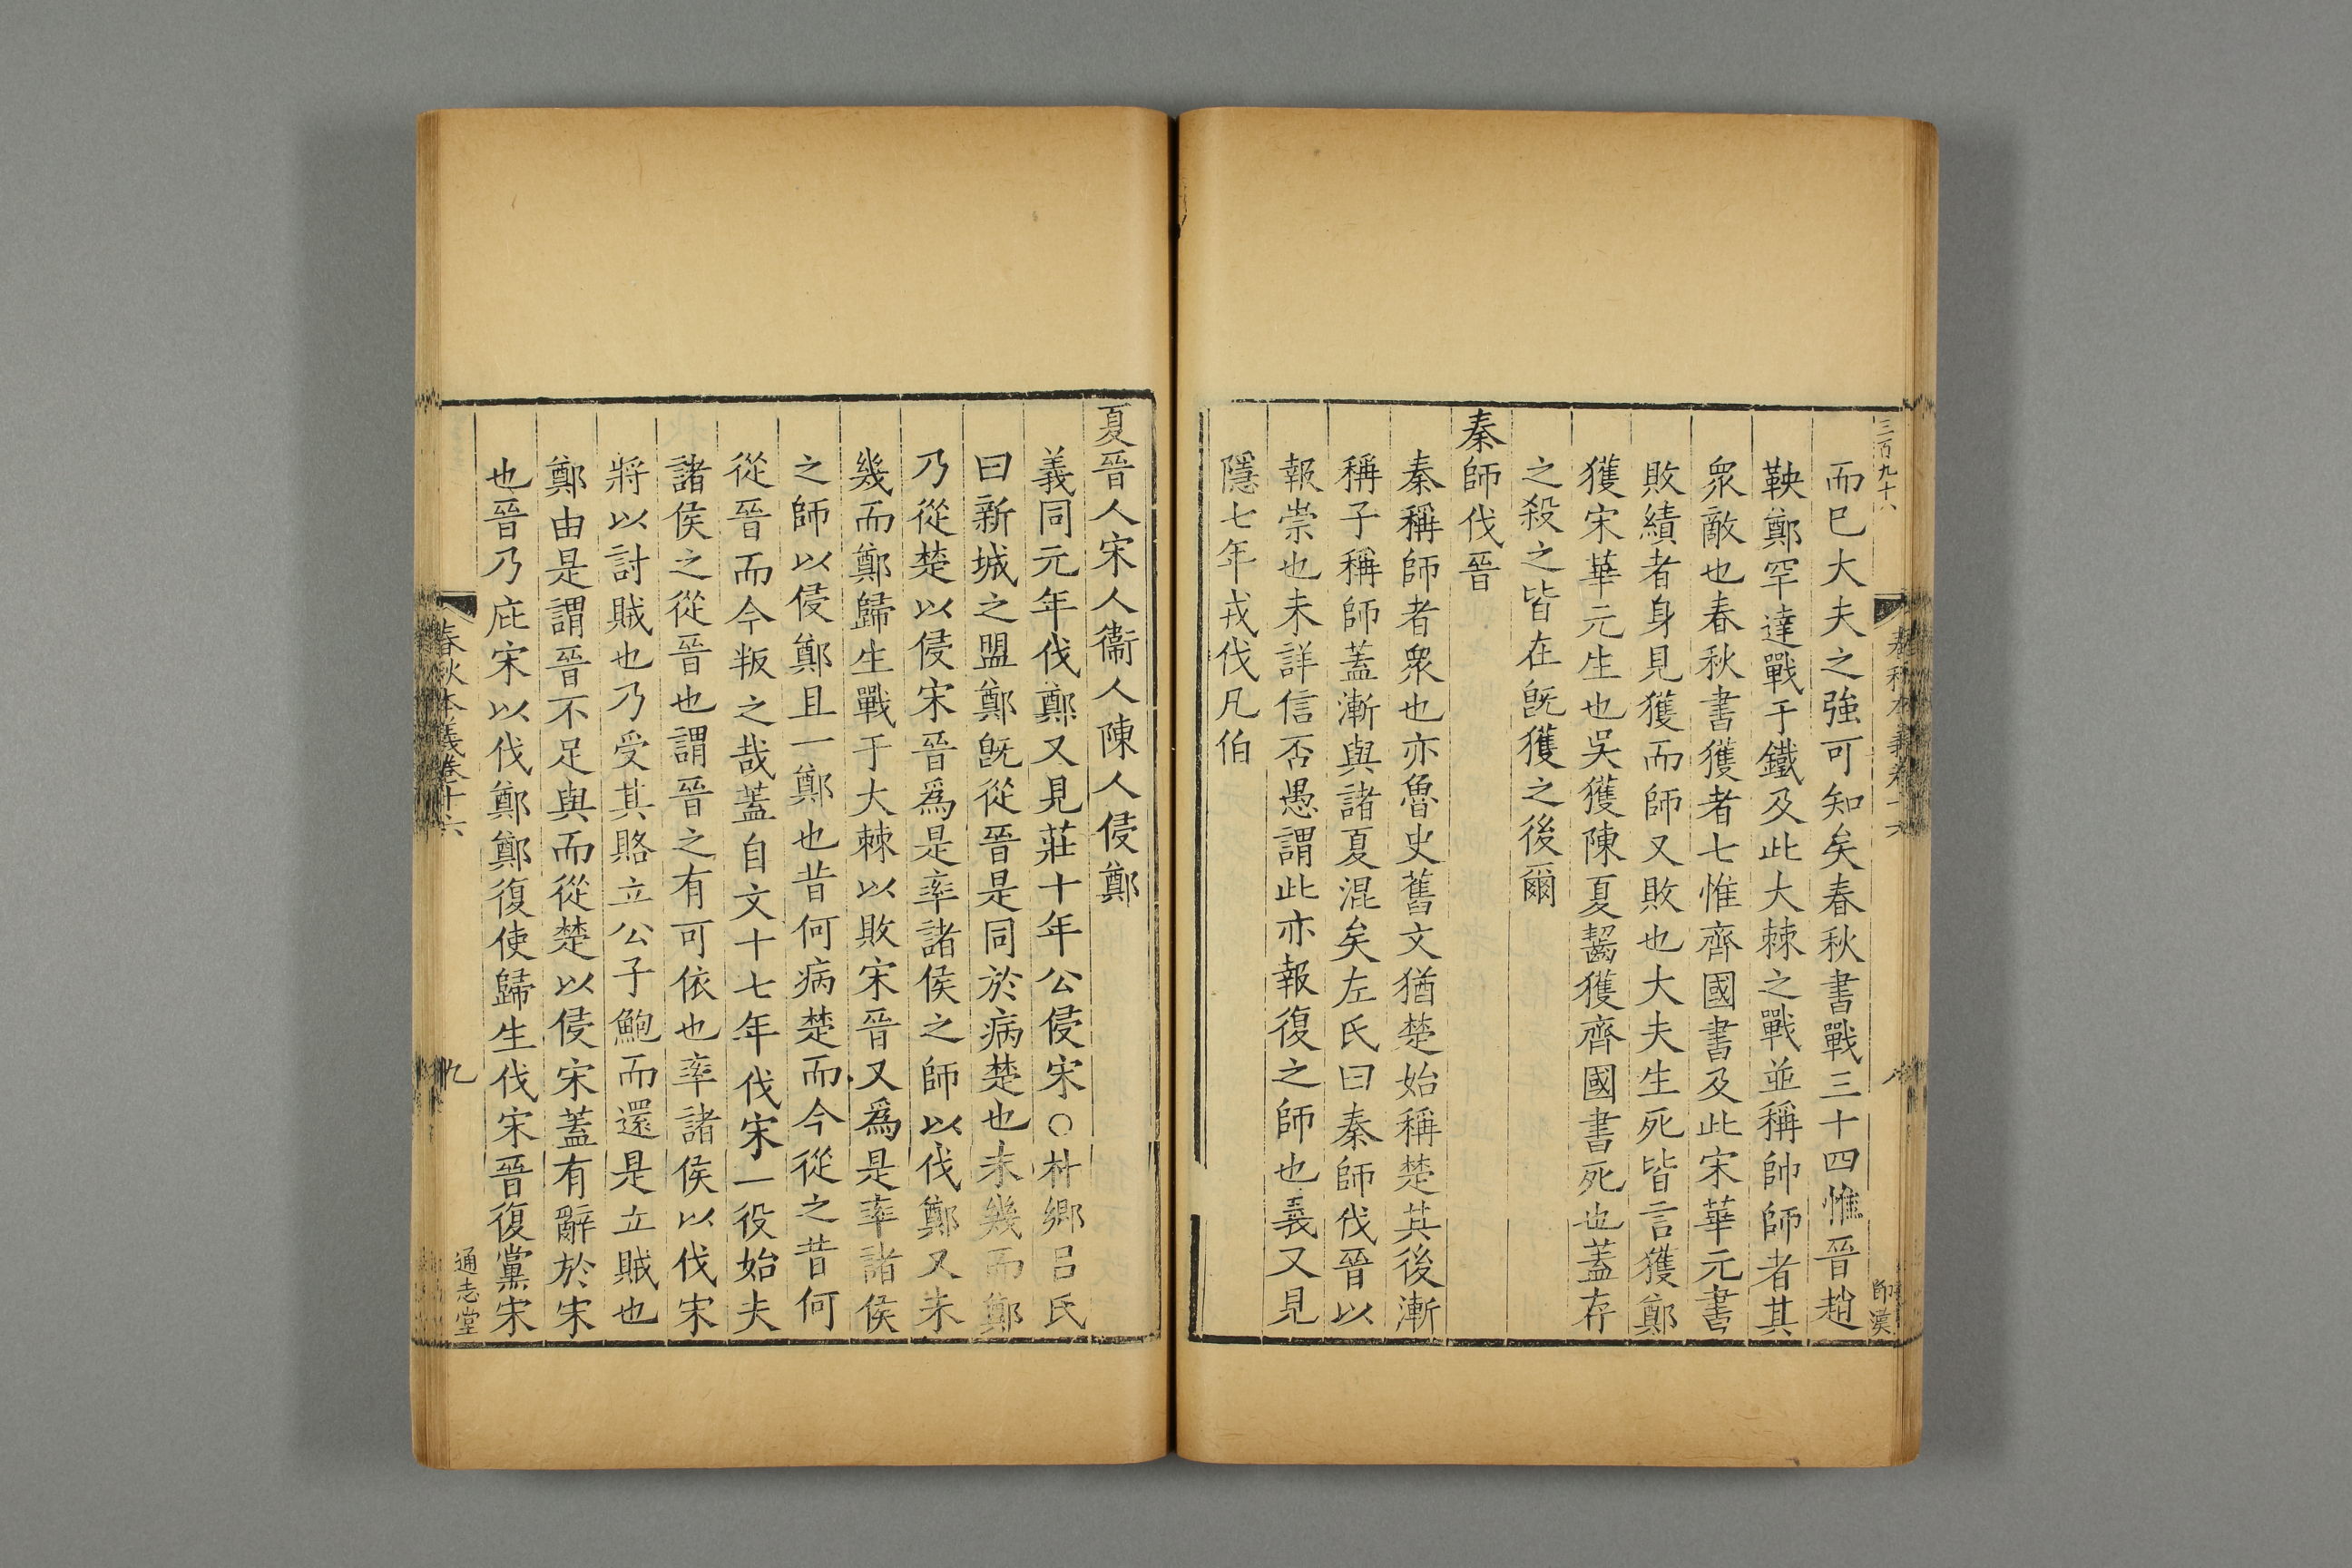 三百九十八
春秋本義卷十六
八
而巳大夫之強可知矣春秋書戰三十四惟晉趙
鞅鄭罕達戰于鐵及此大棘之戰並稱帥師者其
衆敵也春秋書獲者七惟齊國書及此宋華元書
敗績者身見獲而師又敗也大夫生死皆言獲鄭
獲宋華元生也吳獲陳夏齧獲齊國書死也蓋存
之殺之皆在旣獲之後爾
秦師伐晉
秦稱師者衆也亦魯史舊文猶楚始稱楚其後漸
稱子稱師蓋漸與諸夏混矣左氏曰秦師伐晉以
報崇也未詳信否愚謂此亦報復之師也義又見
隱七年戎伐凡伯
夏晉人宋人衞人陳人侵鄭
義同元年伐鄭又見莊十年公侵宋○朴鄉呂氏
曰新城之盟鄭旣從晉是同於病楚也未幾而鄭
乃從楚以侵宋晉爲是率諸侯之師以伐鄭又未
幾而鄭歸生戰于大棘以敗宋晉又爲是率諸侯
之師以侵鄭且一鄭也昔何病楚而今從之昔何
從晉而今叛之哉蓋自文十七年伐宋一役始夫
諸侯之從晉也謂晉之有可依也率諸侯以伐宋
將以討賊也乃受其賂立公子鮑而還是立賊也
鄭由是謂晉不足與而從楚以侵宋蓋有辭於宋
也晉乃庇宋以伐鄭鄭復使歸生伐宋晉復黨宋
春秋本義卷十六
九
通志堂